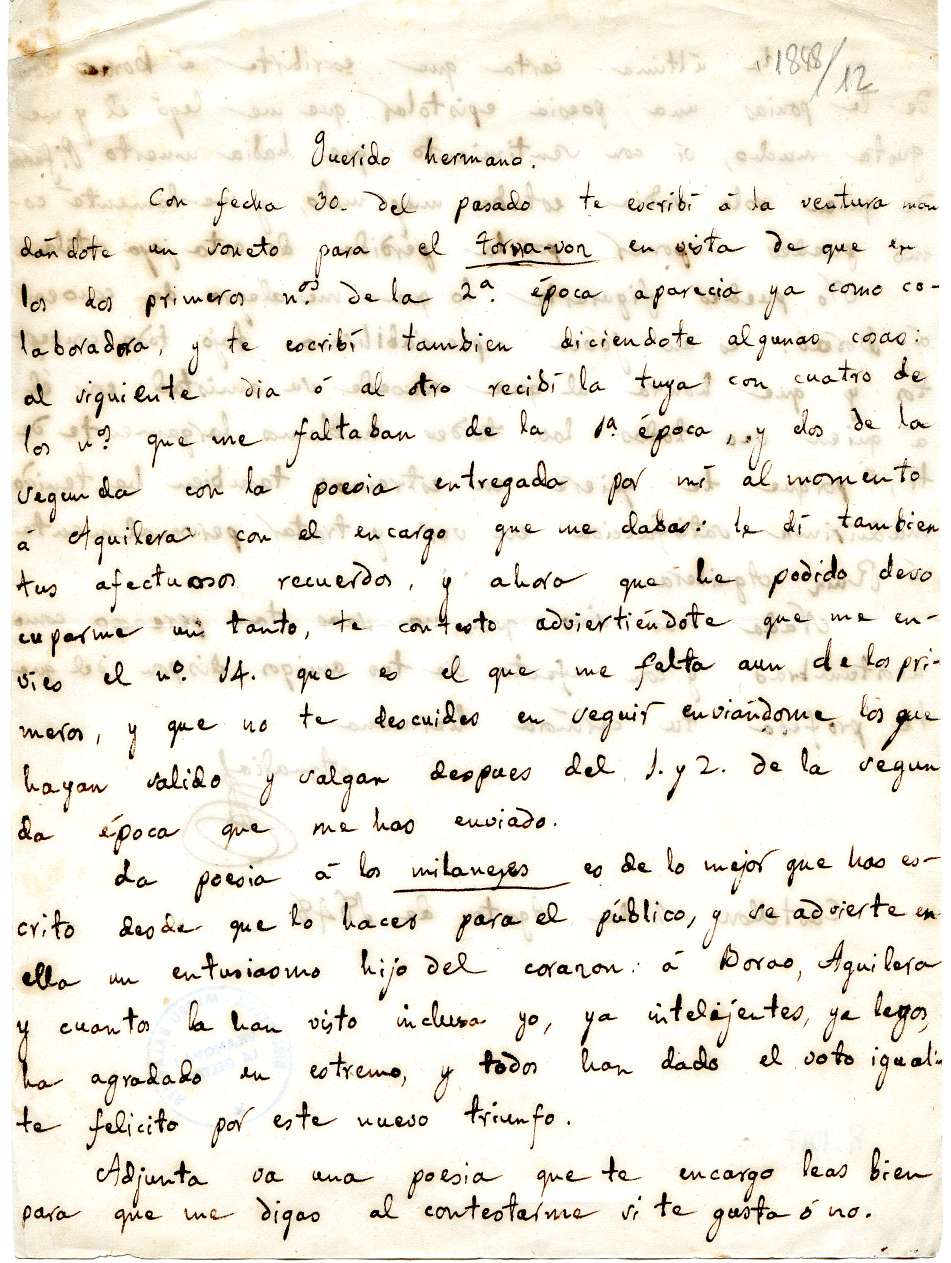 1848/12
Querido hermano.
Con fecha 30. del pasado te escribí á la ventura man
dándote un soneto para el torna-von en vista de que en
los dos primeros n.os de la 2ª. época aparecia ya como co-
laboradora, y te escribí tambien diciendote algunas cosas:
al siguiente dia ó al otro recibí la tuya con cuatro de
los n.os que me faltaban de la 1ª época, y dos de la
segunda con la poesia entregada por mi al momento
á Aguilera con el encargo que me dabas: le dí tambien
tus afectuosos recuerdos, y ahora que he podido deso
cuparme un tanto, te contesto advirtiéndote que me en-
vies el nº. 14. que es el que me falta aun de los pri-
meros, y que no te descuides en seguir enviándome los que
hayan salido y salgan despues del 1. y 2. de la segun
da época que me has enviado.
La poesia á los milaneses es de lo mejor que has es-
crito desde que lo haces para el público, y se advierte en
ella un entusiasmo hijo del corazon: á Borao, Aguilera
y cuantos la han visto inclusa yo, ya intelijentes, ya legos,
ha agradado en estremo, y todos han dado el voto igual:
te felicito por este nuevo triunfo.
Adjunta va una poesia que te encargo leas bien
para que me digas al contestarme si te gusta ó no.